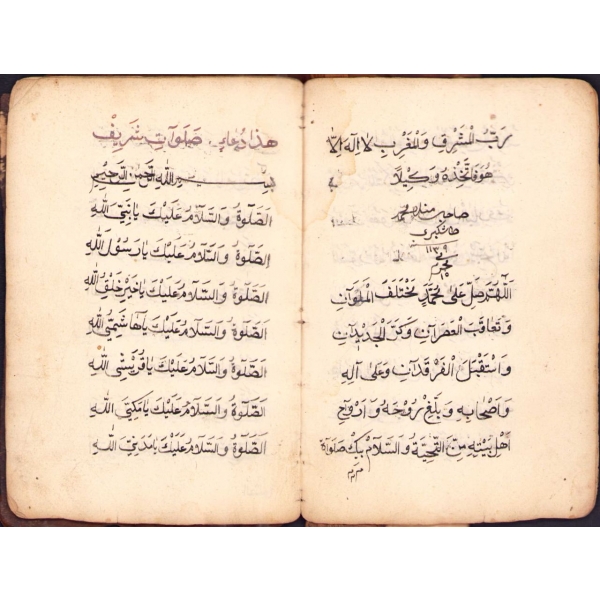 رَبُّ الْمَشْرِقِ وَالْمَغْرِبِ لَا اِلٰهَ اِلَّا
هُوَ فَاتَّخِذْهُ وَكِيلًا
صاحب محمد
١١٣٩
اَللّٰهُمَّ صَلِّ عَلٰى مُحَمَّدٍ مَا اخْتَلَفَ الْمَلَوَانِ
وَتَعَاقَبَ الْعَصْرَانِ وَكَرَّ الْجَدِيدَانِ
وَاسْتَقْبَلَ الْفَرْقَدَانِ وَعَلٰى آلِهِ
وَاَصْحَابِهِ وَبَلِّغْ رُوحَهُ وَاَرْوَاحَ
اَهْلِ بَيْتِهِ مِنَّ التَّحِيَّةُ وَالسَّلَامْ بِكَ صَلَوَاةً
هذا دعاء صلوات شريف
بسم الله الرحمن الرحيم
اَلصَّلٰوةُ وَالسَّلَامُ عَلَيْكَ يَا نَبِيَّ اللهِ
اَلصَّلٰوةُ وَالسَّلَامُ عَلَيْكَ يَا رَسُولَ اللهِ
اَلصَّلٰوةُ وَالسَّلَامُ عَلَيْكَ يَا خَيْرَ خَلْقِ اللهِ
اَلصَّلٰوةُ وَالسَّلَامُ عَلَيْكَ يَا هَاشِمِيُّ اللهِ
اَلصَّلٰوةُ وَالسَّلَامُ عَلَيْكَ يَا قُرَيْشِي اللهِ
اَلصَّلٰوةُ وَالسَّلَامُ عَلَيْكَ يَا مَكِّيَ اللهِ
اَلصَّلٰوةُ وَالسَّلَامُ عَلَيْكَ يَا مَدَنِيَ اللهِ